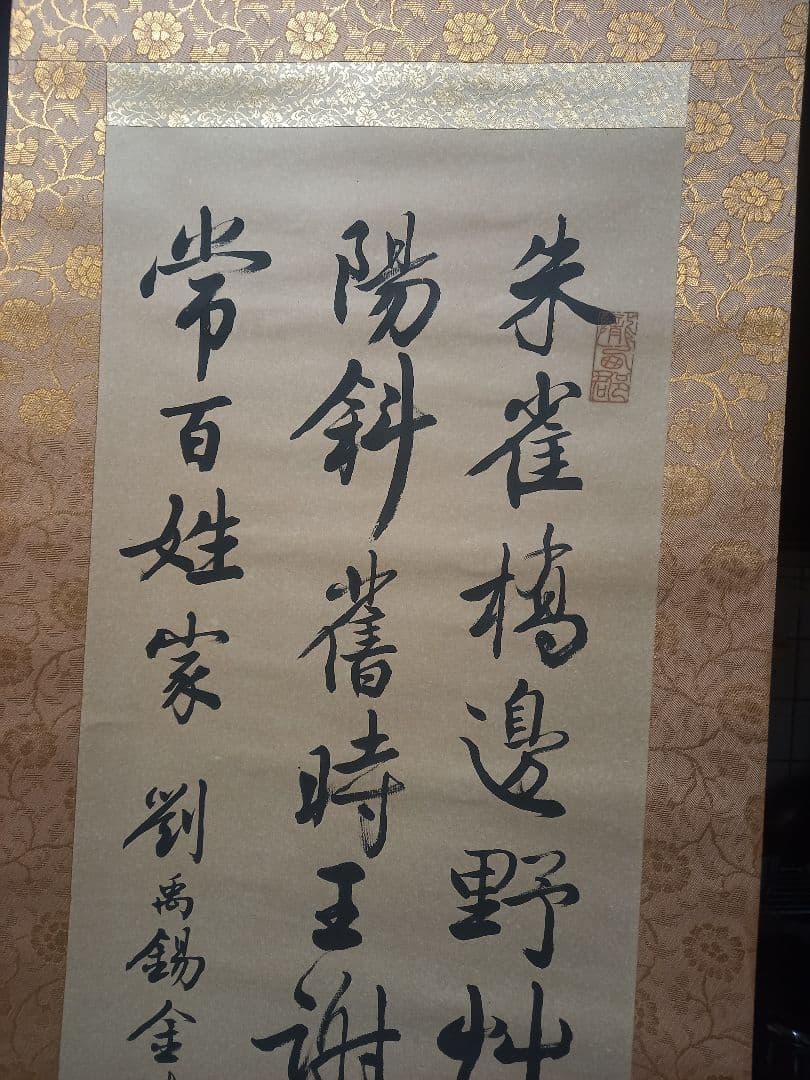 朱雀橋邊野艸
陽斜舊時王謝
常百姓家 劉禹錫金
隴西郡